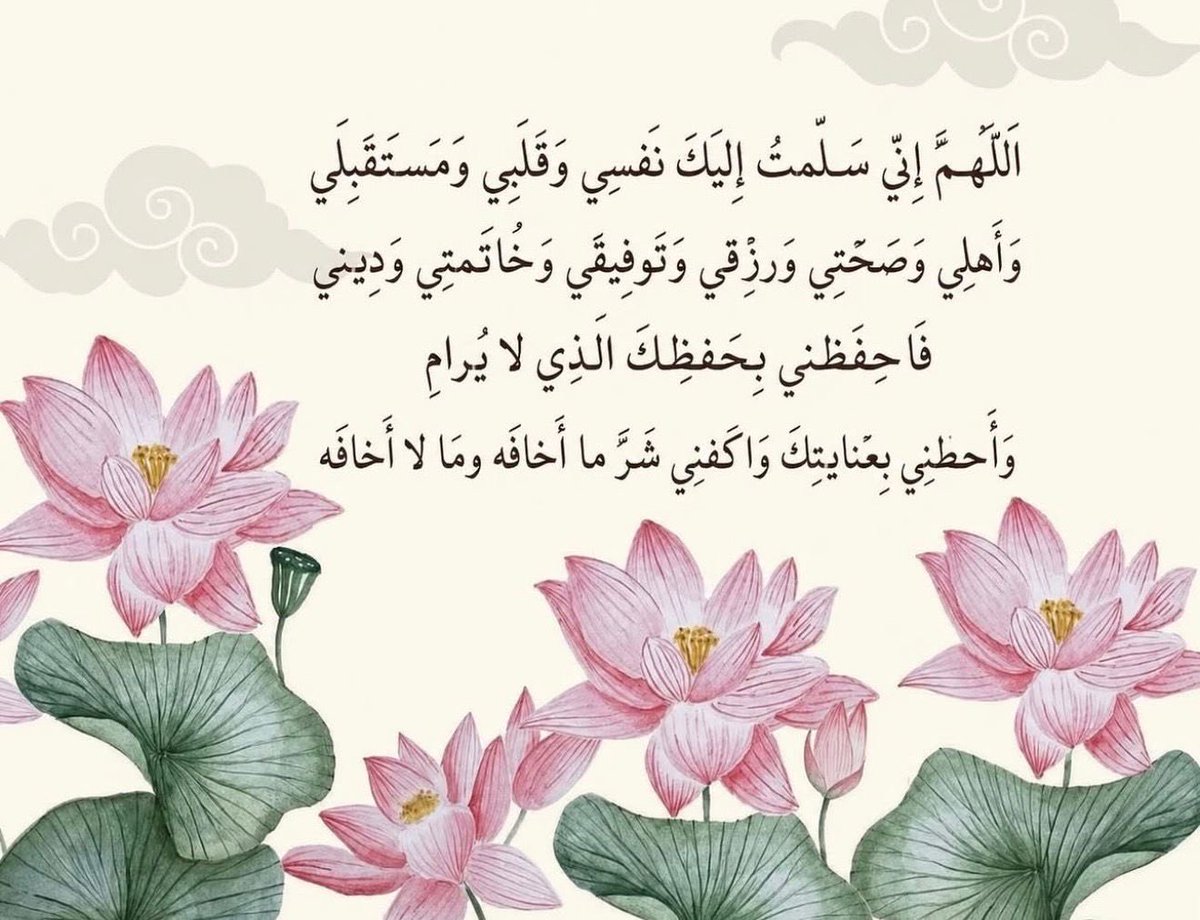 اَللَّهُمَّ إِنّي سَلّمتُ إِليَكَ نَفسِي وَقَلَبِي وَمَستَقَبِلَي
وَأَهلِي وَصَحَتِي وَرزْقي وَتَوفِيقَي وَخُاتَمتِي وَدِيني
فَاحِفَظني بِحَفظِكَ الَذِي لا يُرامِ
وَأَحطنِي بِعْنايتِكَ وَاكَفنِي شَرَّ ما أَخافَه ومَا لا أَخافَه